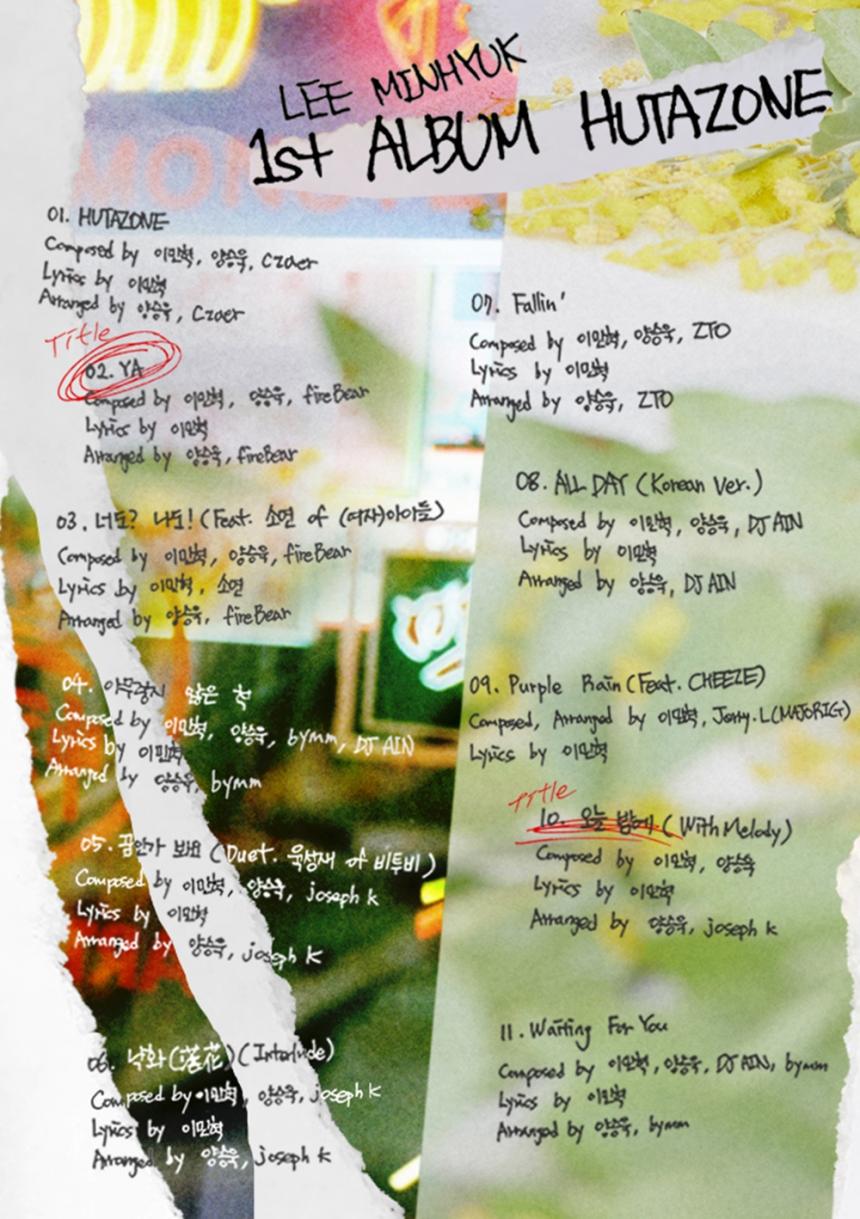 LEE MINHYUK
1st ALBUM HUTAZONE
01. HUTAZONE
Composed by 이민혁, 양승욱, Czaer
Lyrics by 이민혁
Arranged by 양승욱, Czaer
Title
02. YA
Composed by 이민혁, 양승욱, fireBear
Lyrics by 이민혁
Arranged by 양승욱, fireBear
03. 너도? 나도! (Feat. 소연 of (여자)아이들)
Composed by 이민혁, 양승욱, fireBear
Lyrics by 이민혁, 소연
Arranged by 양승욱, fireBear
04. 아무렇지 않은 척
Composed by 이민혁, 양승욱, bymm, DJ AIN
Lyrics by 이민혁
Arranged by 양승욱, bymm
05. 꿈인가 봐요 (Duet. 육성재 of 비투비)
Composed by 이민혁, 양승욱, joseph k
Lyrics by 이민혁
Arranged by 양승욱, joseph k
06. 낙화(落花) (Interlude)
Composed by 이민혁, 양승욱, joseph K
Lyrics by 이민혁
Arranged by 양승욱, joseph K
07. Fallin'
Composed by 이민혁, 양승욱, ZTO
Lyrics by 이민혁
Arranged by 양승욱, ZTO
08. ALL DAY (Korean Ver.)
Composed by 이민혁, 양승욱, DJ AIN
Lyrics by 이민혁
Arranged by 양승욱, DJ AIN
09. Purple Rain (Feat. CHEEZE)
Composed, Arranged by 이민혁, Jerry.L(MAJORIG)
Lyrics by 이민혁
Title
10. 오늘 밤에 (With Melody)
Composed by 이민혁, 양승욱
Lyrics by 이민혁
Arranged by 양승욱, joseph k
11. Waiting For You
Composed by 이민혁, 양승욱, DJ AIN, bymm
Lyrics by 이민혁
Arranged by 양승욱, bymm